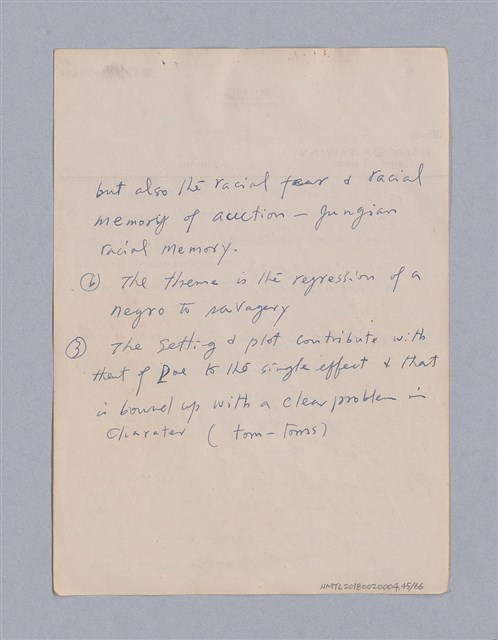 but also the racial fear & racial
memory of auction – Jungian
racial memory.
⑥ The theme is the regression of a
negro to savagery
③ The setting & plot contribute with
that of Poe to the single effect & that
is bound up with a clear problem in
Charater ( tom-Toms)
NMTL20180020004.45/66